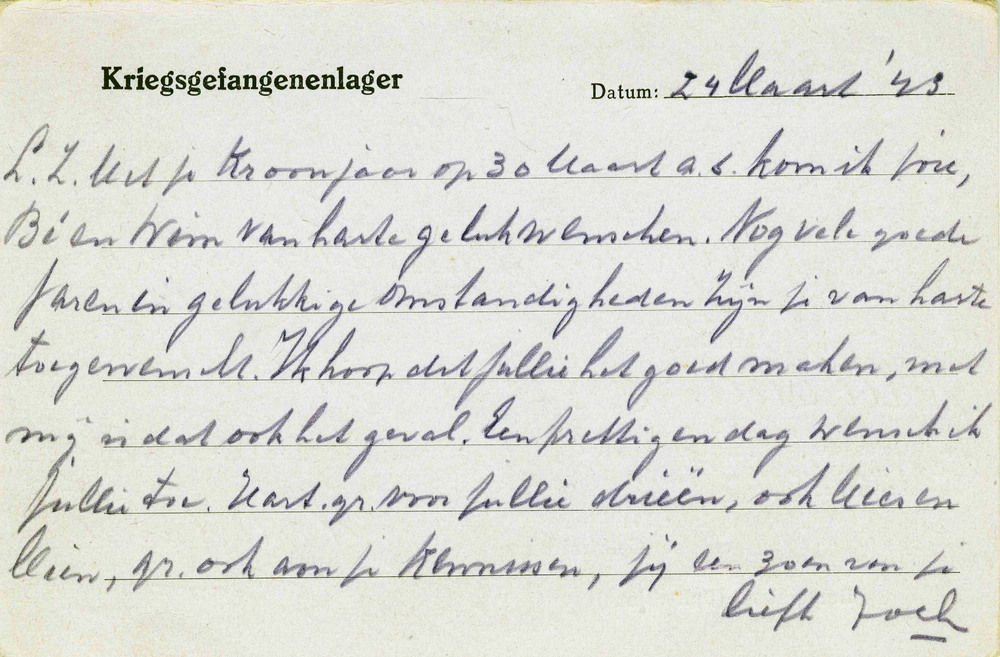 Kriegsgefangenenlager
Datum: 24 Maart '43
L. Z. Met je Kroonjaar op 30 Maart a.s. kom ik jou,
Bé en Wim van harte gelukwenschen. Nog vele goede
jaren in gelukkige omstandigheden zijn je van harte
toegewenscht. Ik hoop dat jullie het goed maken, met
mij is dat ook het geval. Een prettigen dag wensch ik
jullie toe. Hart. gr. voor jullie drieën, ook Mies en
Mien, gr. ook aan je Kennissen, jij een zoen van je
liefh